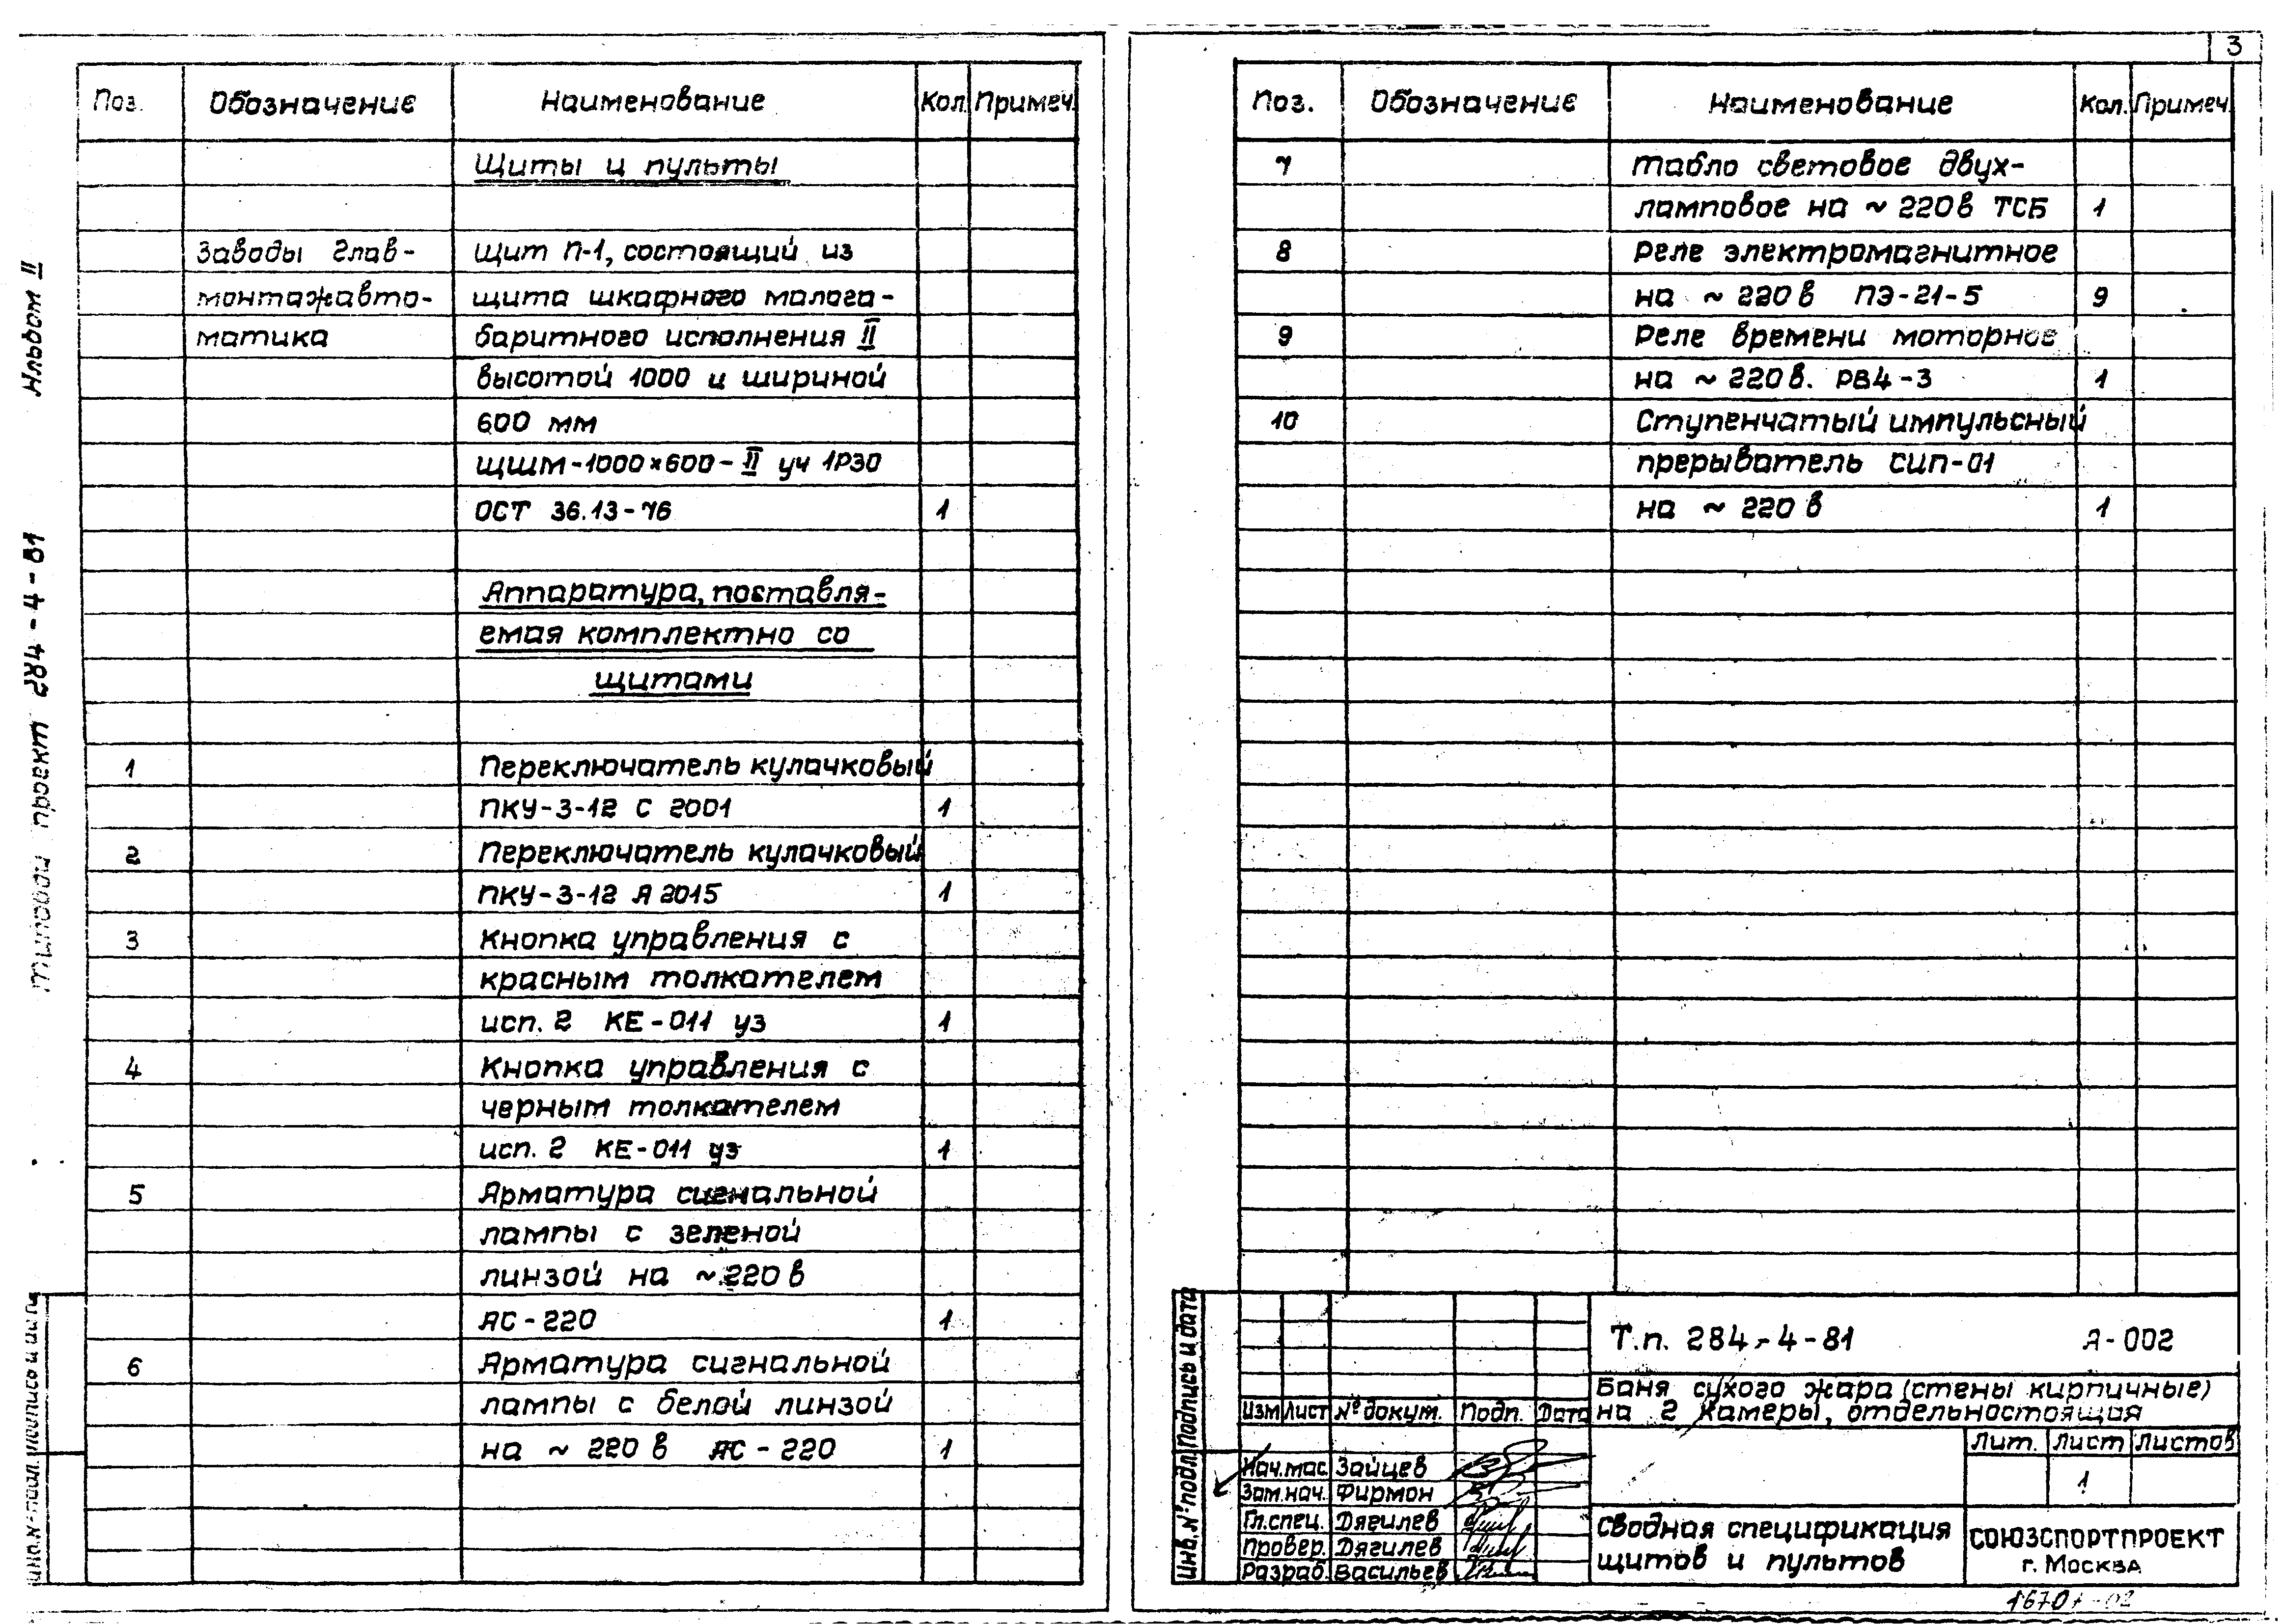 3
Альбом II
Типовой проект 284-4-81
Поз. Обозначение Наименование Кол. Примеч.
Щиты и пульты
Заводы Глав- Щит П-1, состоящий из
монтажавто- щита шкафного малога-
матика баритного исполнения II
высотой 1000 и шириной
600 мм
ЩШМ-1000×600-II уч 1Р30
ОСТ 36.13-76 1
Аппаратура, поставля-
емая комплектно со
щитами
1 Переключатель кулачковый
ПКУ-3-12 С 2001 1
2 Переключатель кулачковый
ПКУ-3-12 А 2015 1
3 Кнопка управления с
красным толкателем
исп. 2 КЕ-011 у3 1
4 Кнопка управления с
черным толкателем
исп. 2 КЕ-011 у3 1
5 Арматура сигнальной
лампы с зеленой
линзой на ~ 220 в
АС-220 1
6 Арматура сигнальной
лампы с белой линзой
на ~ 220 в АС-220 1
Поз. Обозначение Наименование Кол. Примеч.
7 Табло световое двух-
ламповое на ~ 220 в ТСБ 1
8 Реле электромагнитное
на ~ 220 в ПЭ-21-5 9
9 Реле времени моторное
на ~ 220 в. РВ4-3 1
10 Ступенчатый импульсный
прерыватель СИП-01
на ~ 220 в 1
Инв. № подл. Подпись и дата
Инв. № подл. Подпись и дата
Т.п. 284-4-81 А-002
Баня сухого жара (стены кирпичные)
на 2 камеры, отдельностоящая
Изм Лист № докум. Подп. Дата
Лит. Лист Листов
1
Нач.мас. Зайцев
Зам.нач. Фирмон
Гл.спец. Дягилев
Провер. Дягилев
Разраб. Васильев
Сводная спецификация
щитов и пультов
СОЮЗСПОРТПРОЕКТ
г. Москва